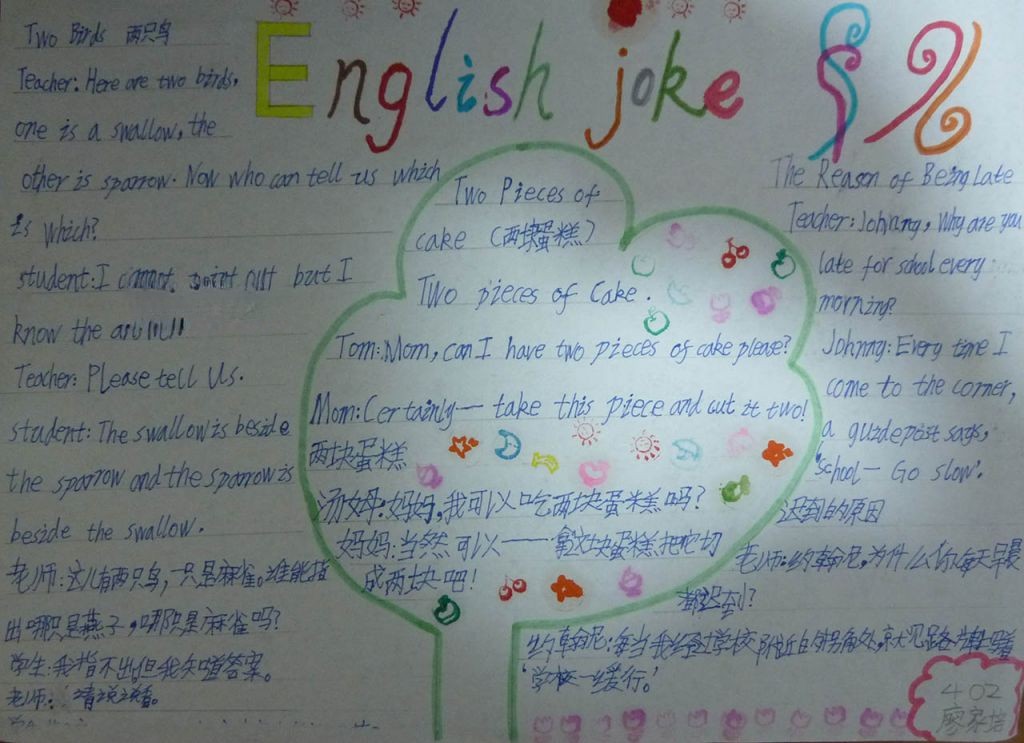 English joke
Two Birds 两只鸟
Teacher: Here are two birds,
one is a swallow, the
other is sparrow. Now who can tell us which
is which?
student: I cannot point out but I
know the
Teacher: Please tell Us.
student: The swallow is beside
the sparrow and the sparrow is
beside the swallow.
老师:这儿有两只鸟,一只是麻雀。谁能指
出哪只是燕子,哪只是麻雀吗?
学生:我指不出,但我知道答案。
老师: 请说说看。
Two Pieces of
cake (两块蛋糕)
Two pieces of Cake.
Tom: Mom, can I have two pieces of cake please?
Mom: Certainly— take this piece and cut it two!
两块蛋糕
汤姆:妈妈,我可以吃两块蛋糕吗?
妈妈:当然可以——拿这块蛋糕把它切
成两块吧!
The Reason of Being Late
Teacher: Johnny, Why are you
late for school every
morning?
Johnny: Every time I
come to the corner,
a guidepost says,
"School— Go slow".
迟到的原因
老师:约翰尼,为什么你每天早晨
都迟到?
约翰尼:每当我经过学校附近的拐角处,就见路牌上写着
'学校—缓行.'
402